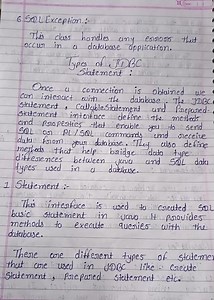 6. SQLException :-
This class handles any errors that
occur in a database application.
Types of JDBC
Statement :-
Once a connection is obtained we
can interact with the database. The JDBC
Statement, CallableStatement and Prepared
Statement interface define the methods
and properties that enable you to send
SQL or PL/SQL commands and receive
data from your database. They also define
methods that help bridge data type
differences between Java and SQL data
types used in a database.
1. Statement :-
This interface is used to created SQL
basic statement in java it provides
methods to execute queries with the
database.
There are different types of statemen
that are used in JDBC like create
Statement, Prepared Statement etc.